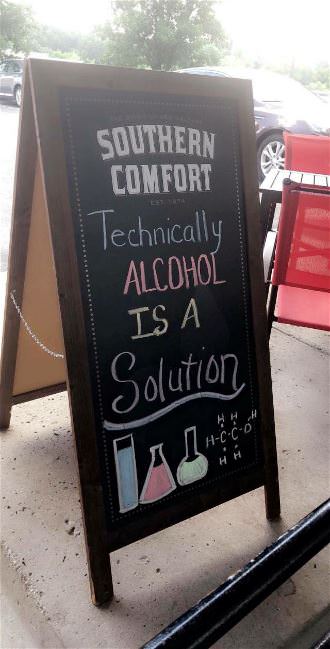 SOUTHERN
COMFORT
EST. 1874
Technically
ALCOHOL
IS A
Solution
H H H
H-C-C-O
H H